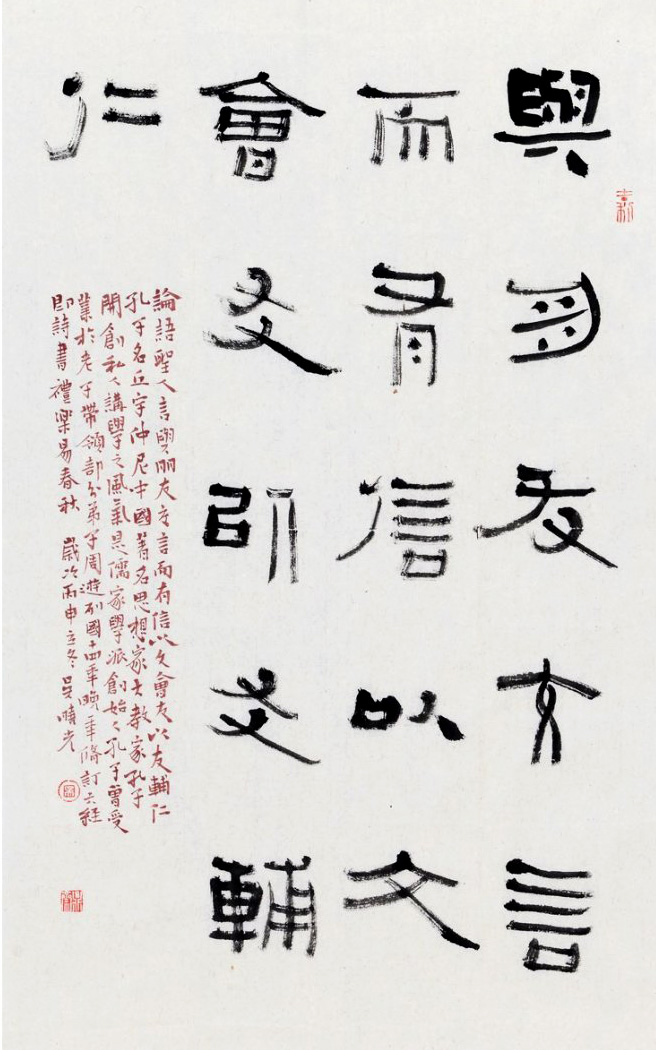 與朋友交言
而有信以文
會友以友輔
仁
論語聖人言與朋友交言而有信以文會友以友輔仁
孔子名丘字仲尼中國著名思想家大教家孔子
開創私人講學之風氣是儒家學派創始人孔子曾受
業於老子帶領部分弟子周遊列國十四年晚年修訂六經
即詩書禮樂易春秋 歲次丙申立冬